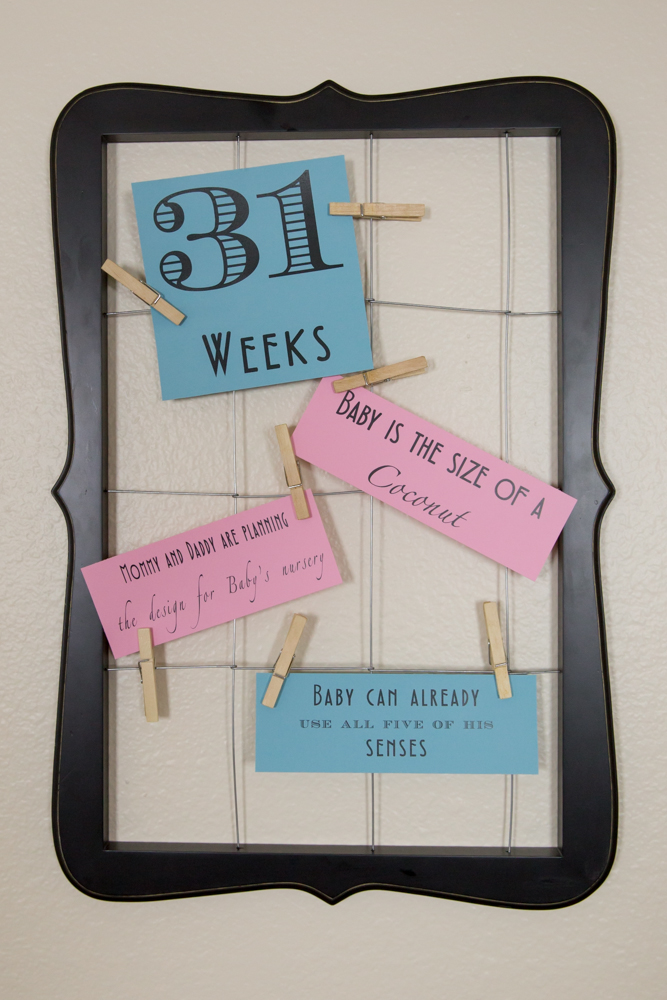 31
WEEKS
BABY IS THE SIZE OF A
Coconut
MOMMY AND DADDY ARE PLANNING
the design for Baby's nursery
BABY CAN ALREADY
USE ALL FIVE OF HIS
SENSES